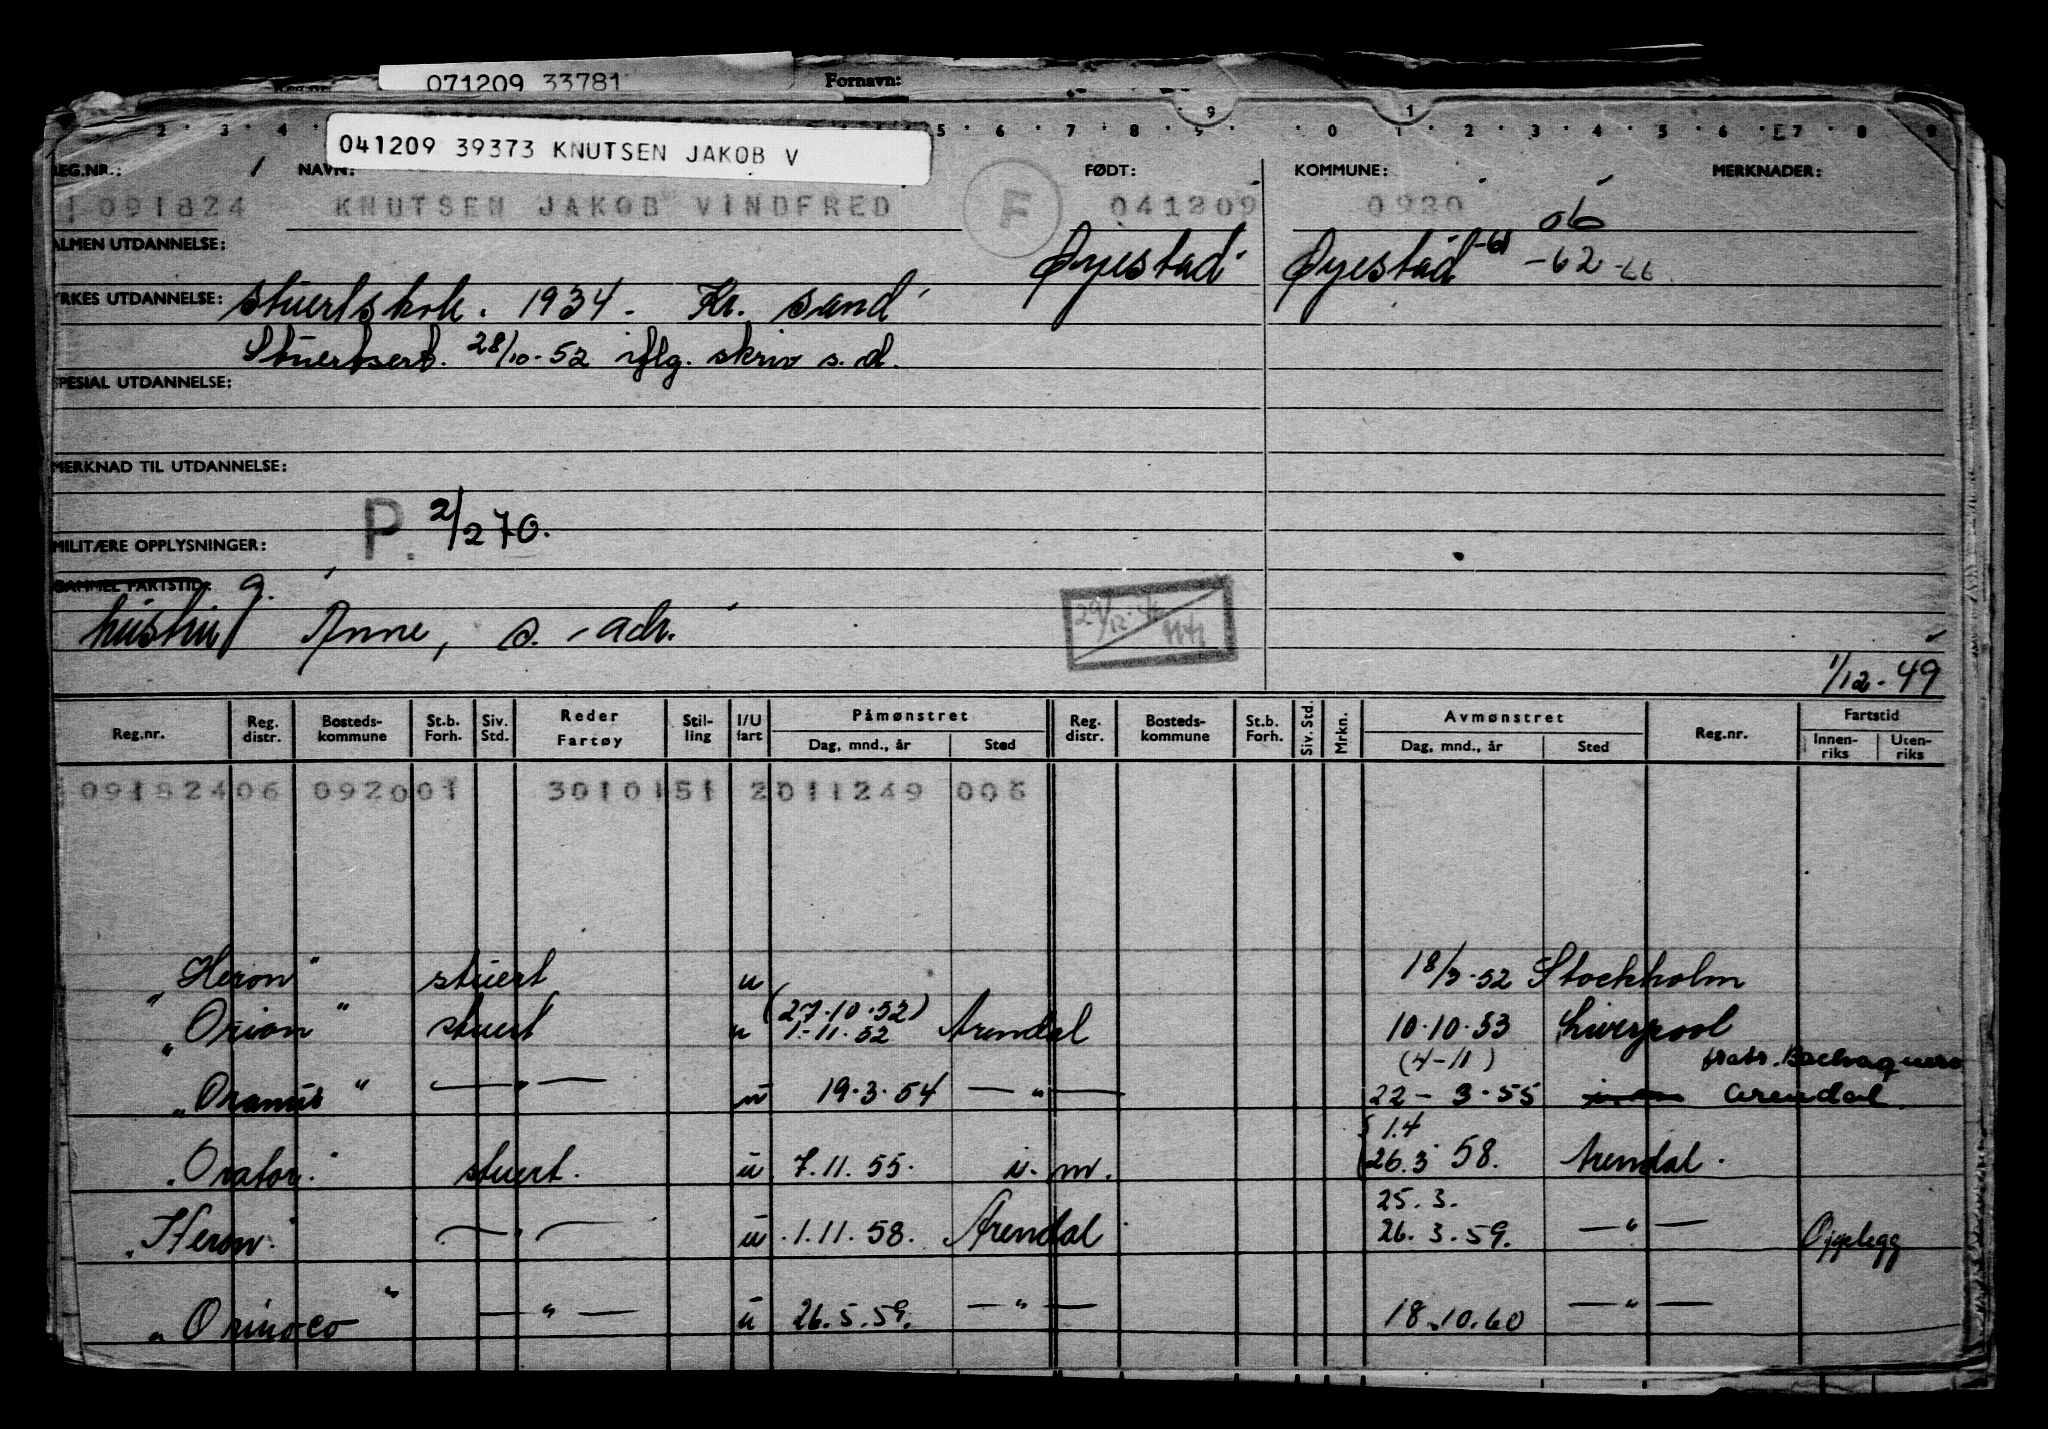 071209 33781 Fornavn:
2 3 4 5 6 7 8 9 0 1 2 3 4 5 6 7 8 9
041209 39373 KNUTSEN JAKOB V
REG.NR.: NAVN: FØDT: KOMMUNE: MERKNADER:
091824 KNUTSEN JAKOB VINDFRED F 041209 0920 06
ALMEN UTDANNELSE: Øyestad Øyestad -61 -62 -66
YRKES UTDANNELSE: Stuertskole. 1934 - Kr. sand
Stuertsert. 28/10-52 iflg. skriv s. d.
SPESIAL UTDANNELSE:
MERKNAD TIL UTDANNELSE:
P. 2/270.
MILITÆRE OPPLYSNINGER:
GAMMEL FARTSTID: g.
hustru Anne, s. adr.
1/12-49
Reg.nr. Reg. distr. Bosteds-kommune St.b. Forh. Siv. Std. Reder Fartøy Stil-ling I/U fart Påmønstret Dag, mnd., år Sted Reg. distr. Bosteds-kommune St.b. Forh. Siv. Std. Mrkn. Avmønstret Dag, mnd., år Sted Reg.nr. Fartstid Innen-riks Uten-riks
09182406 092001 3010151 2011249 006
"Heron" stuert u 18/3-52 Stockholm
(27.10.52)
"Orion" stuert u 1-11.52 Arendal 10.10.53 Liverpool
(4-11)
"Oranus" — " — u 19.3.54 — " — 22-3.55 Arendal.
1.4
"Orator." stuert. u 7.11.55. i. m. 26.3 58. Arendal.
25.3.
"Heron." — " — u 1.11.58. Arendal 26.3.59. — " — Opplegg
"Orinoco" — " — u 26.5.59. — " — 18.10.60 — " —